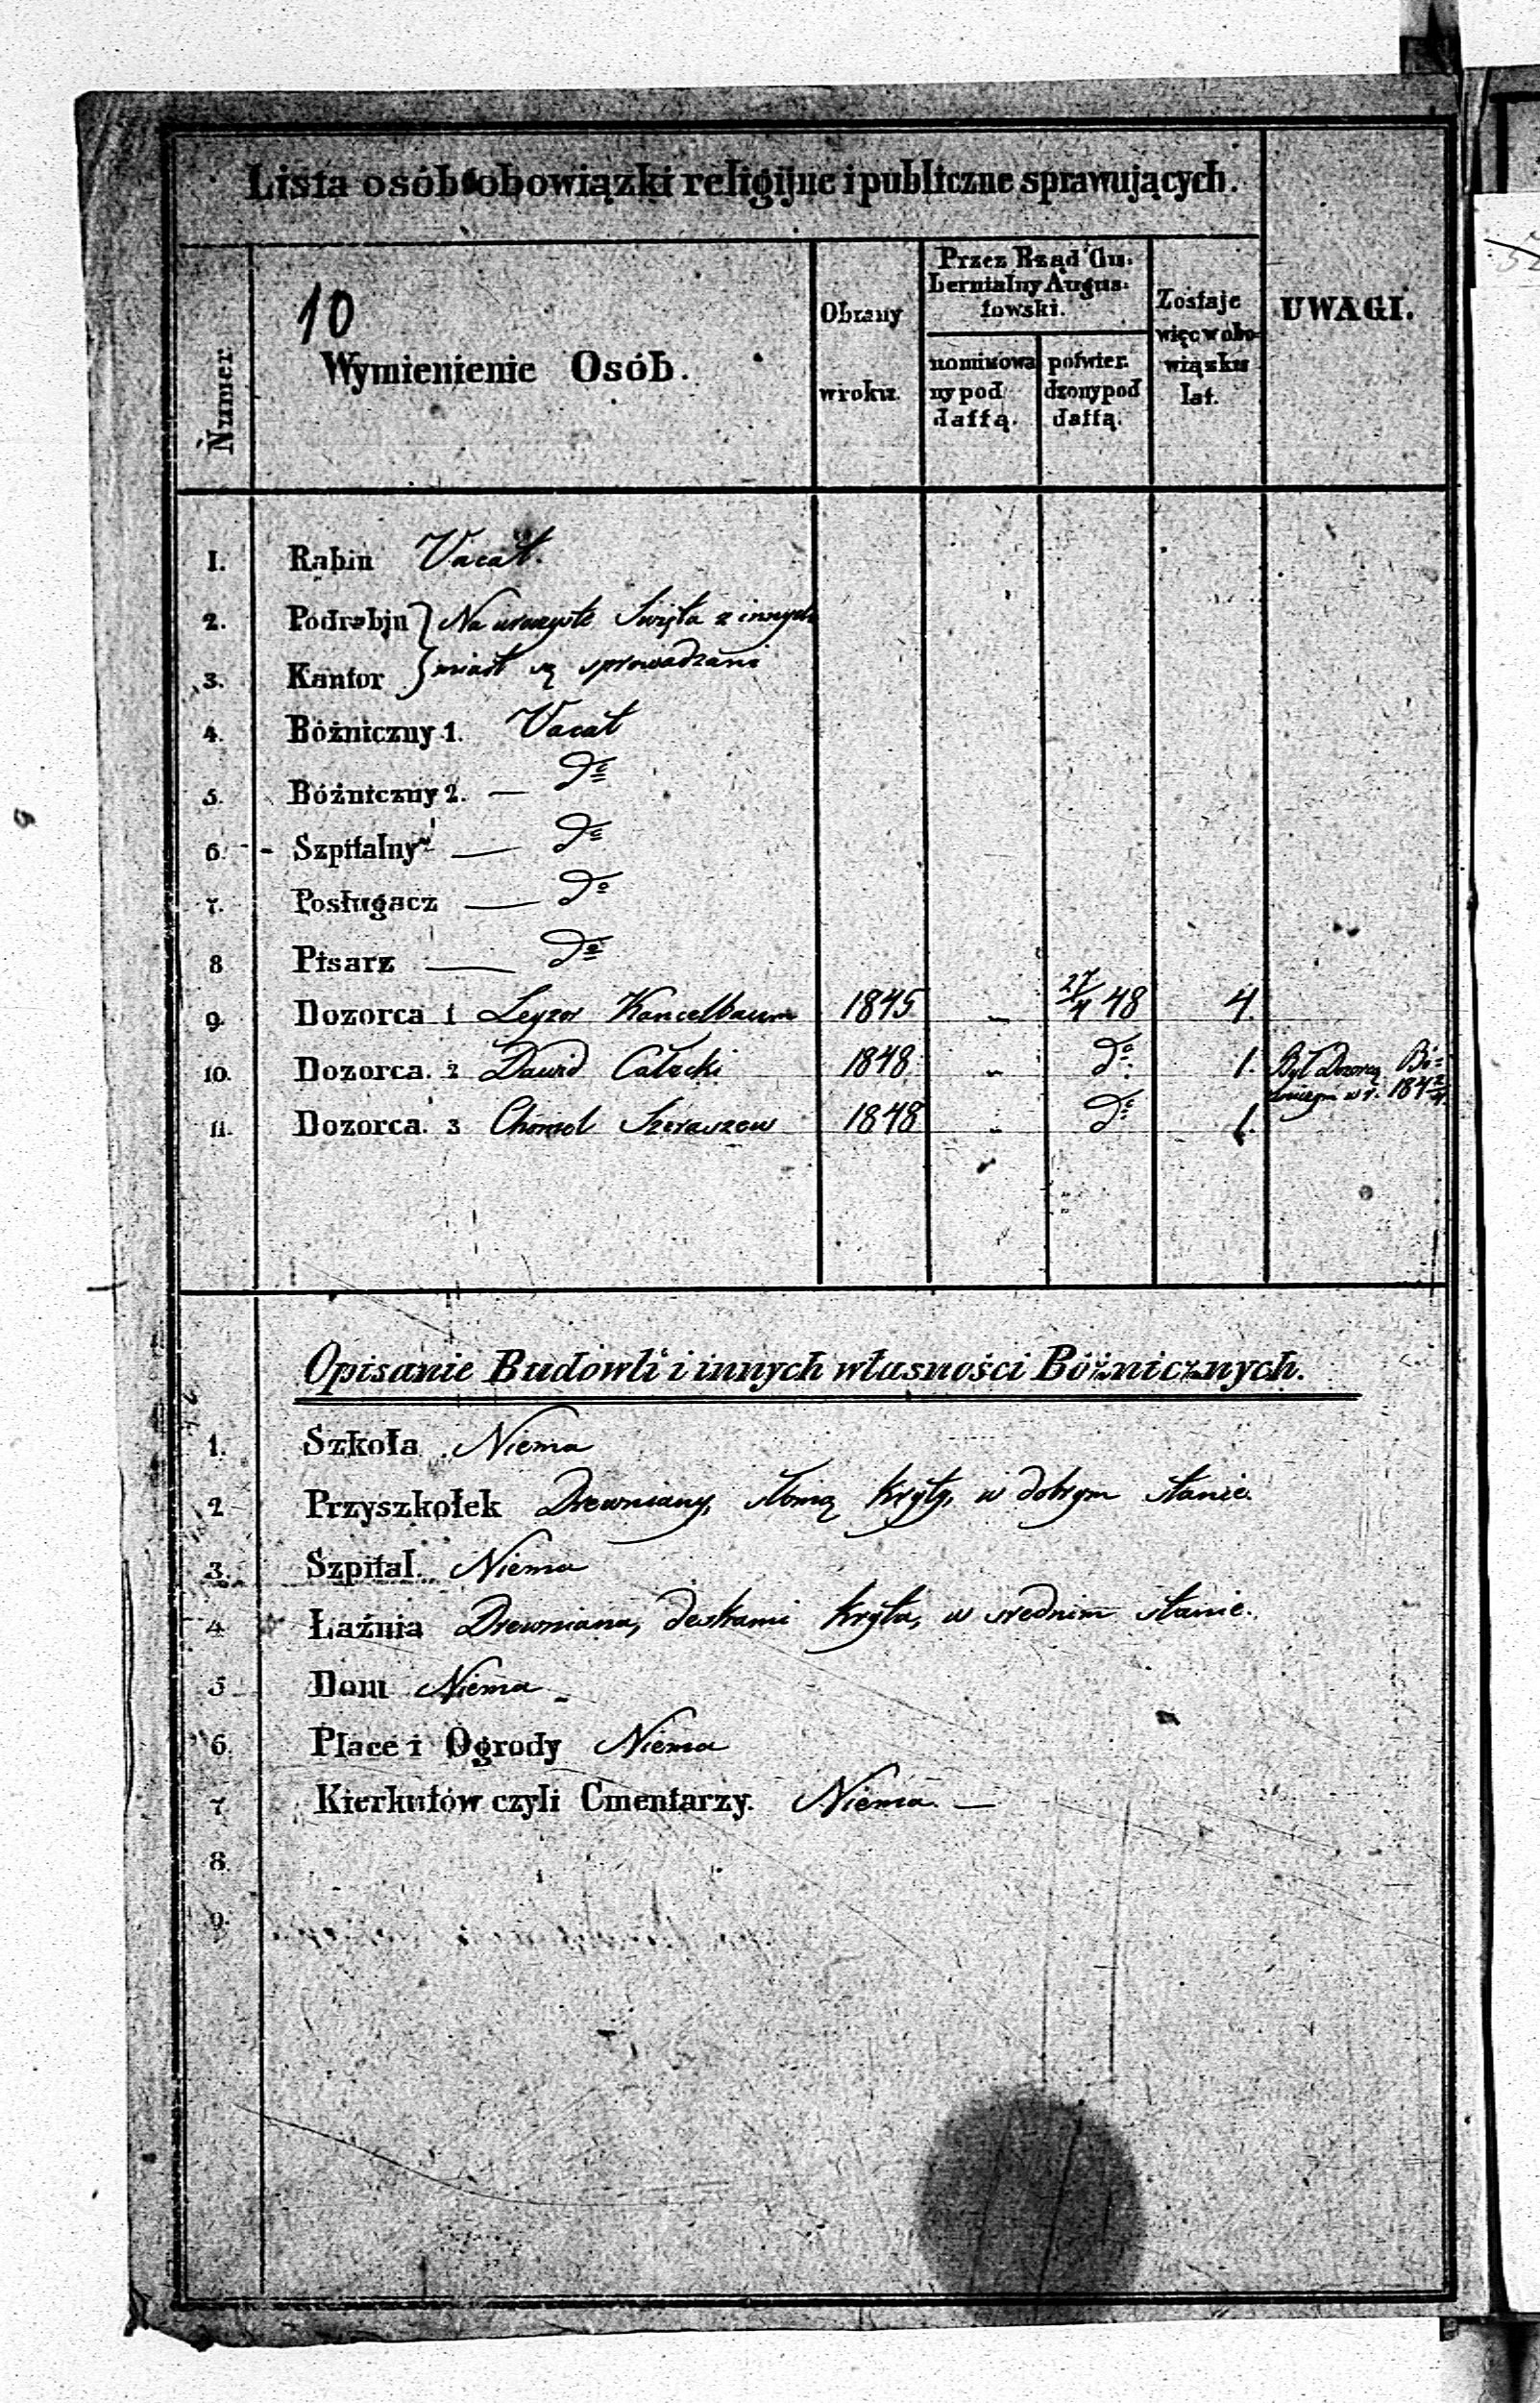 Lista osób obowiązki religijne i publiczne sprawujących.
Numer
10
Wymienienie Osób.
Obrany
w roku.
Przez Rząd Gu-
bernialny Augus-
towski.
nominowa
ny pod
dattą.
potwier.
dzony pod
dattą.
Zostaje
więc w obo-
wiązku
lat.
UWAGI.
1. Rabin Vacat.
2. Podrabin } Na uroczyste Święta z innych
3. Kantor } miast są sprowadzani
4. Bóżniczny 1. Vacat
5. Bóżniczny 2. — do
6. Szpitalny — do
7. Posługacz — do
8 Pisarz — do
9. Dozorca 1 Leyzor Kancelbaum 1845 „ 27/4 48 4.
10. Dozorca. 2 Dawid Całecki 1848 „ do 1. Był Dozorcą Bó-
żnicznym w r. 184
11. Dozorca. 3 Chonel Szeraszew 1848 „ do 1.
Opisanie Budowli i innych własności Bóżnicznych.
1. Szkoła Niema
2 Przyszkołek Drewniany, słomą kryty, w dobrym stanie.
3. Szpital. Niema
4 Łaźnia Drewniana, deskami kryta, w srednim stanie.
5 Dom Niema
6 Place i Ogrody Niema
7 Kierkutów czyli Cmentarzy. Niema. —
8.
9.